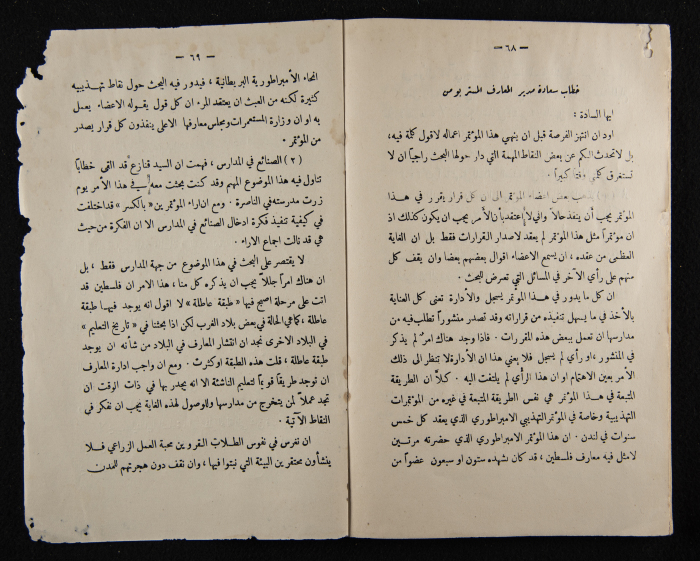 — ٦٨ —
خطاب سعادة مدير المعارف المستر بومن
ايها السادة :
اود ان انتهز الفرصة قبل ان ينهي هذا المؤتمر اعماله لاقول كلمة فيه،
بل لاتحدث الكم عن بعض النقاط المهمة التي دار حولها البحث راجياً ان لا
تستغرق كلمتي وقتاً كبيراً .
بعض اعضاء المؤتمر الى ان كل قرار يقرر في هـذا
المؤتمر يجب أن ينفذ حالاً واني لا إعتقد بأن الأمر يجب ان يكون كذلك اذ
ان مؤتمراً مثل هذا المؤتمر لم يعقد لاصدار القرارات فقط بل ان الغاية
العظمى من عقده ، ان يسمع الاعضاء اقوال بعضهم بعضا وان يقف كل
منهم على رأي الآخر في المسائل التي تعرض للبحث .
ان كل ما يدور في هـذا المؤتمر يسجل والأدارة تعنى كل العناية
بالأخذ في ما يسهل تنفيذه من قراراته وقد تصدر منشوراً تطلب فيه من
مدارسها ان تعمل ببعض هذه المقررات . فاذا وجد هناك امرٌ لم يذكر
في المنشور ، او رأي لم يسجل فلا يعني هذا ان الأدارة لا تنظر الى ذلك
الأمر بعين الاهتمام او ان هذا الرأي لم يلتفت اليه . كلاّ ان الطريقة
المتبعة في هـذا المؤتمر هي نفس الطريقة المتبعة في غيره من المؤتمرات
التهذيبية وخاصة في المؤتمر التهذيبي الامبراطوري الذي يعقد كل خمس
سنوات في لندن . ان هذا المؤتمر الامبراطوري الذي حضرته مرتـين
لامثل فيه معارف فلسطين ، قد كان يشهده ستون او سبعون عضواً من
— ٦٩ —
انحاء الأمبراطورية البريطانية ، فيدور فيه البحث حول نقاط تهـذيبيه
كثيرة لكنه من العبث ان يعتقد المرء ان كل قول يقوله الاعضاء يعمل
به او ان وزارة المستعمرات ومجلس معارفها الاعلى ينفذون كل قرار يصدر
من المؤتمر .
( ٢ ) الصنائع في المدارس ، فهمت ان السيد قنازع قد القى خطاباً
تناول فيه هذا الموضوع المهم وقد كنت بحثت معه في هذا الأمر يوم
زرت مدرسته في الناصرة . ومع ان اراء المؤتمرين « بالكسر » قد اختلفت
في كيفية تنفيذ فكرة ادخال الصنائع في المدارس الا ان الفكرة من حيث
هي قد نالت اجماع الاراء .
لا يقتصر على البحث في هذا الموضوع من جهة المدارس فقط ، بل
ان هناك امراً جللاً يجب ان يذكره كل منا ، هذا الامر ان فلسطين قد
اتت على مرحلة اصبح فيها « طبقة عاطلة » لا اقول انه يوجد فيهـا طبقة
عاطلة ، كما هي الحالة في بعض بلاد الغرب لكن اذا بحثنا في « تاريخ التعليم »
في البلاد الاخرى نجد ان انتشار المعارف في البلاد من شأنه ان يوجد
طبقة عاطلة ، قلت هذه الطبقة او كثرت . ومع ان واجب ادارة المعارف
ان توجد طريقاً قويماً لتعليم الناشئة الا انه يجدر بها في ذات الوقت ان
تجد عملاً لمن يتخرج من مدارسها وللوصول لهذه الغاية يجب ان نفكر في
النقاط الآتية .
ان نغرس في نفوس الطلاب القرويين محبة العمل الزراعي فـلا
ينشأون محتقرين البيئة التي نبتوا فيها ، وان نقف دون هجرتهم للمدن